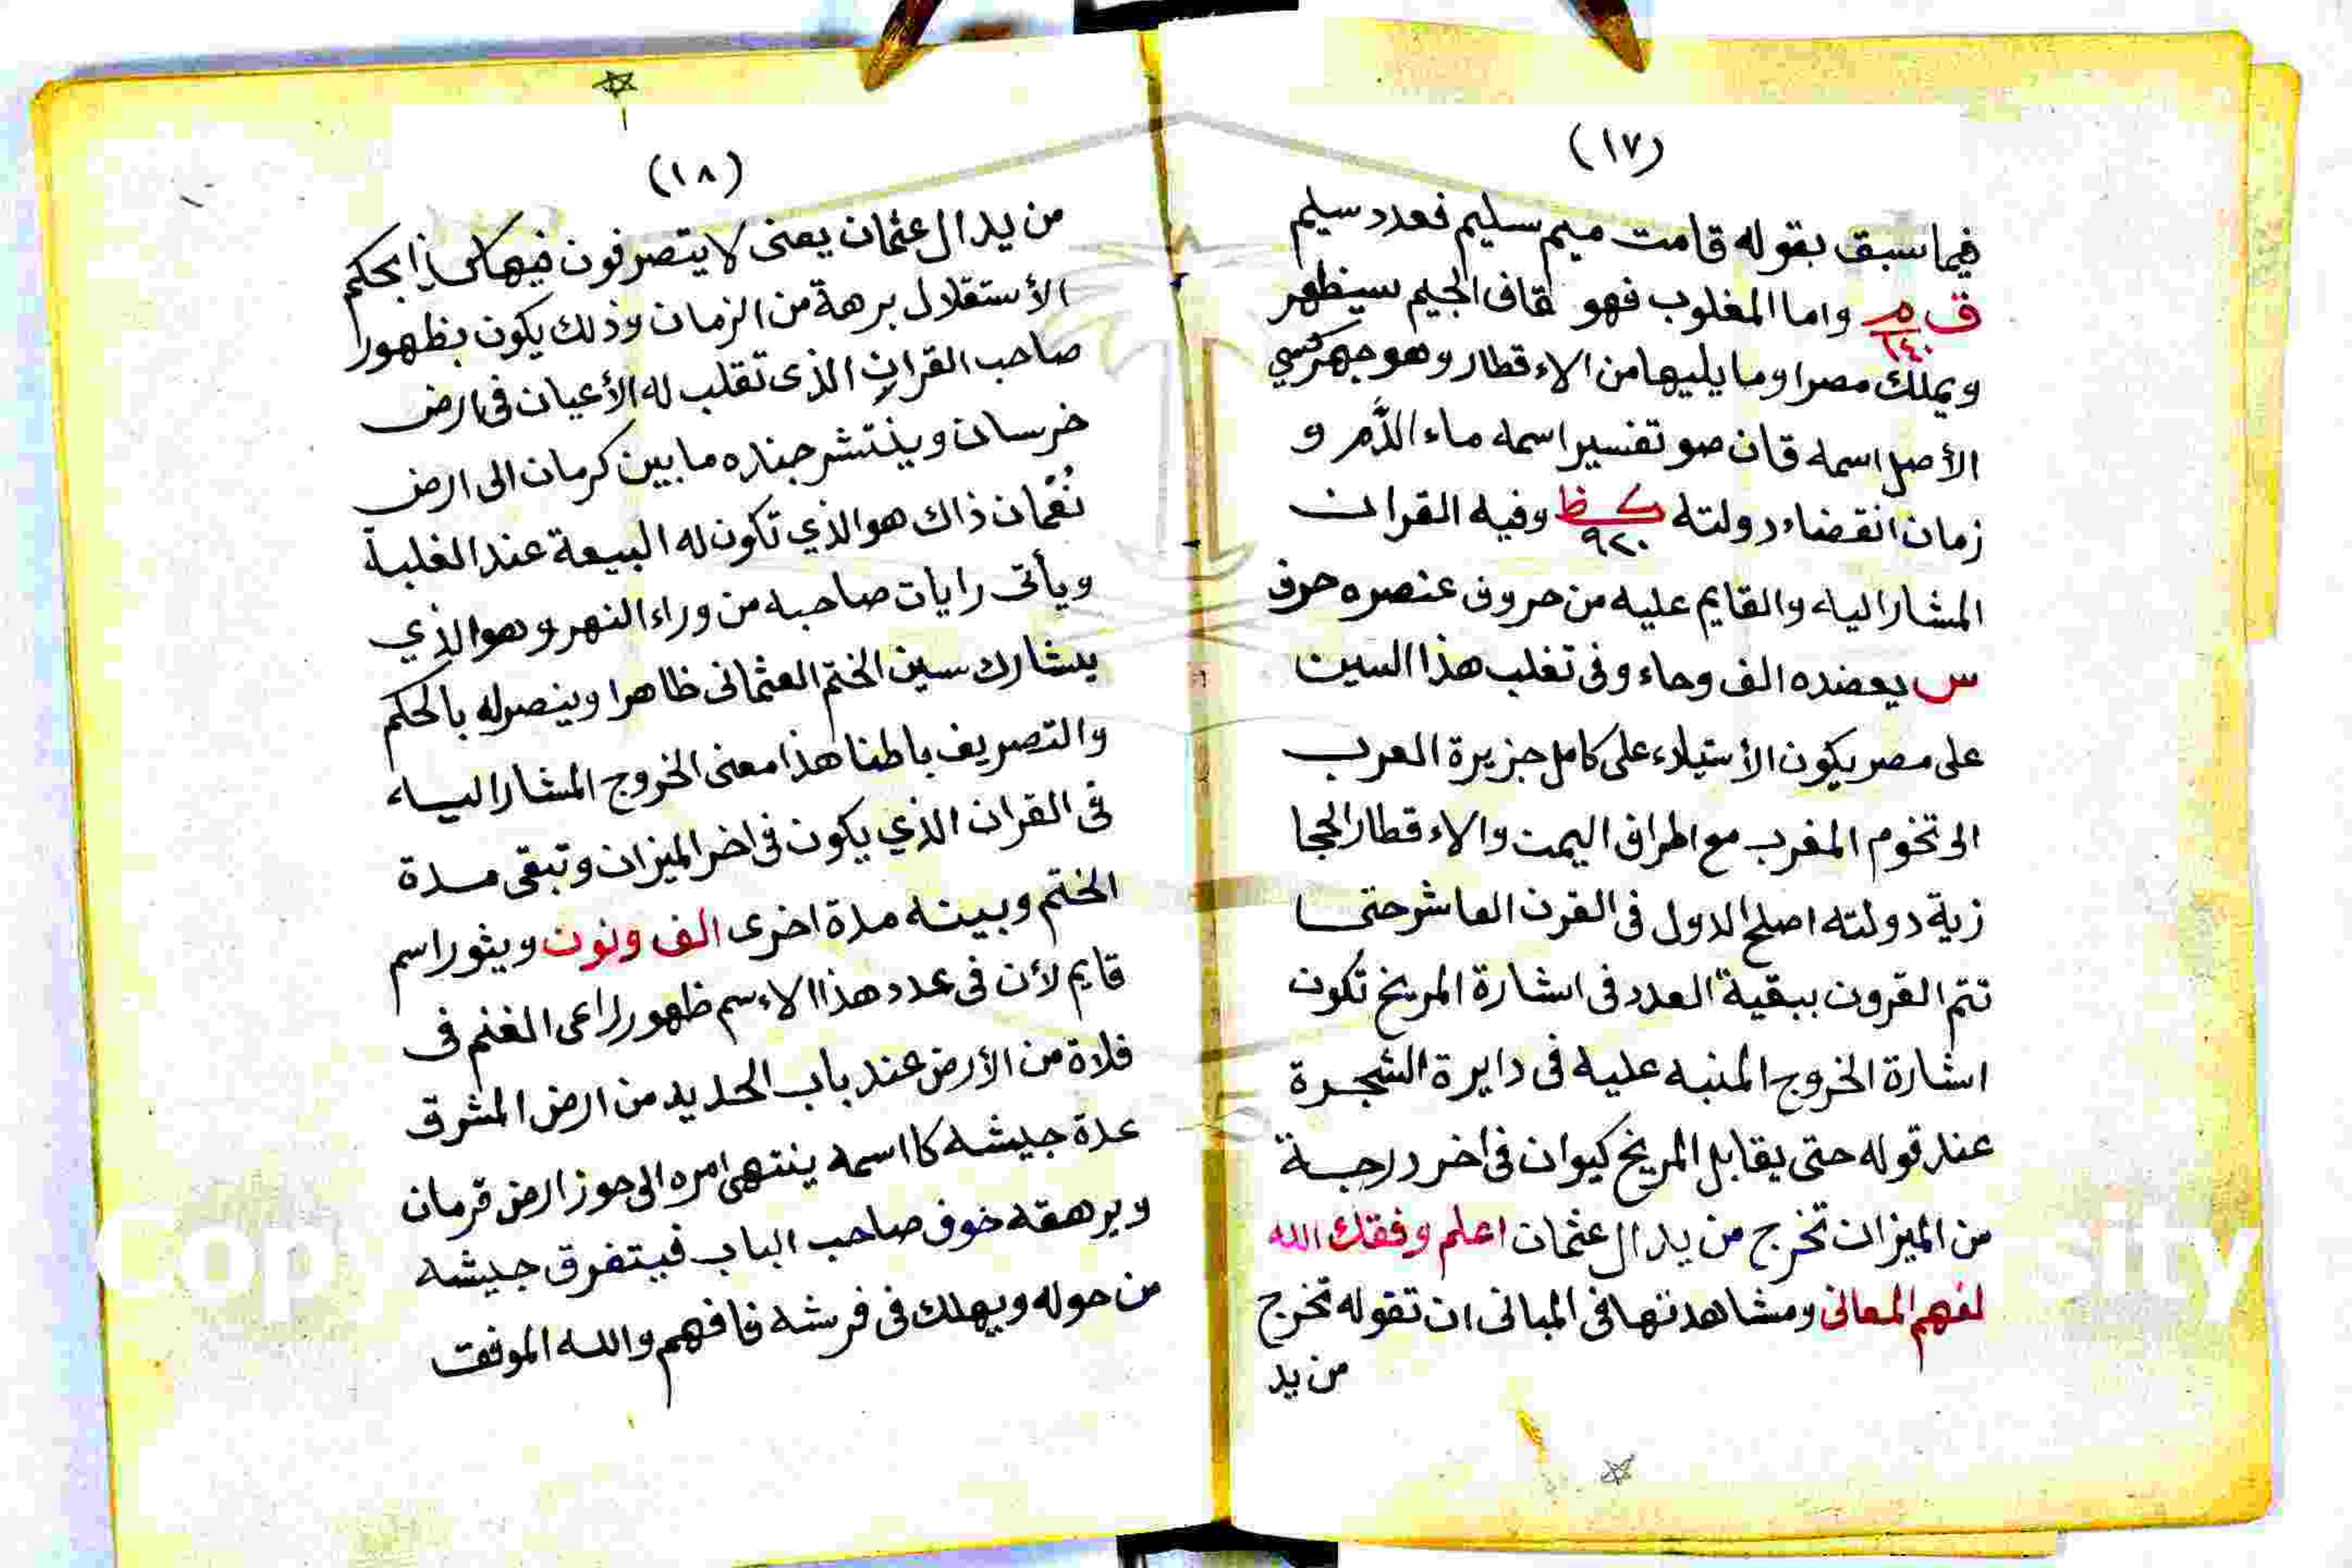 (١٧)
فيما سبق بقوله قامت ميم سليم فعدد سليم
ق م ١٤٠ واما المغلوب فهو قاف الجيم سيظهر
ويملك مصرا وما يليها من الاءقطار وهو جهركسي
الأصل اسمه قان صو تفسير اسمه ماء الدَّم و
زمان انقضاء دولته ك ظ ٩٢٠ وفيه القران
المشار اليه والقايم عليه من حروف عنصره حرف
س يعضده الف وحاء وفى تغلب هذا السين
على مصر يكون الأستيلاء على كامل جزيرة العرب
الى تخوم المغرب مع اطراف اليمن والاءقطار الحجا
زية دولته اصلح الدول فى القرن العاشر حتى
تتم القرون ببقية العدد فى اشارة المريخ تكون
اشارة الخروج المنبه عليه فى دايرة الشجرة
عند قوله حتى يقابل المريخ كيوان فى اخر درجة
من الميزان تخرج من يد ال عثمان اعلم وفقك الله
لفهم المعانى ومشاهدتها فى المبانى ان تقوله تخرج
من يد
(١٨)
من يد ال عثمان يعنى لا يتصرفون فيها كذا بحكم
الأستقلال برهة من الزمان وذلك يكون بظهور
صاحب القران الذى تقلب له الأعيان فى ارض
خرسان وينتشر جنده ما بين كرمان الى ارض
نُعْمان ذاك هو الذي تكون له البيعة عند الغلبة
ويأتى رايات صاحبه من وراء النهر وهو الذي
يشارك سين الختم العثمانى ظاهرا وينصرله بالحكم
والتصريف باطنا هذا معنى الخروج المشار اليه
فى القران الذي يكون فى اخر الميزان وتبقى مدة
الختم وبينه مدة اخرى الف ونون ويثور اسم
قايم لأن فى عدد هذا الاءسم ظهور راعى الغنم فى
فلاة من الأرض عند باب الحديد من ارض المشرق
عدة جيشه كا اسمه ينتهى امره الى حوز ارض قرمان
ويرهقه خوف صاحب الباب فيتفرق جيشه
من حوله ويهلك فى فرشه فافهم والله الموفق